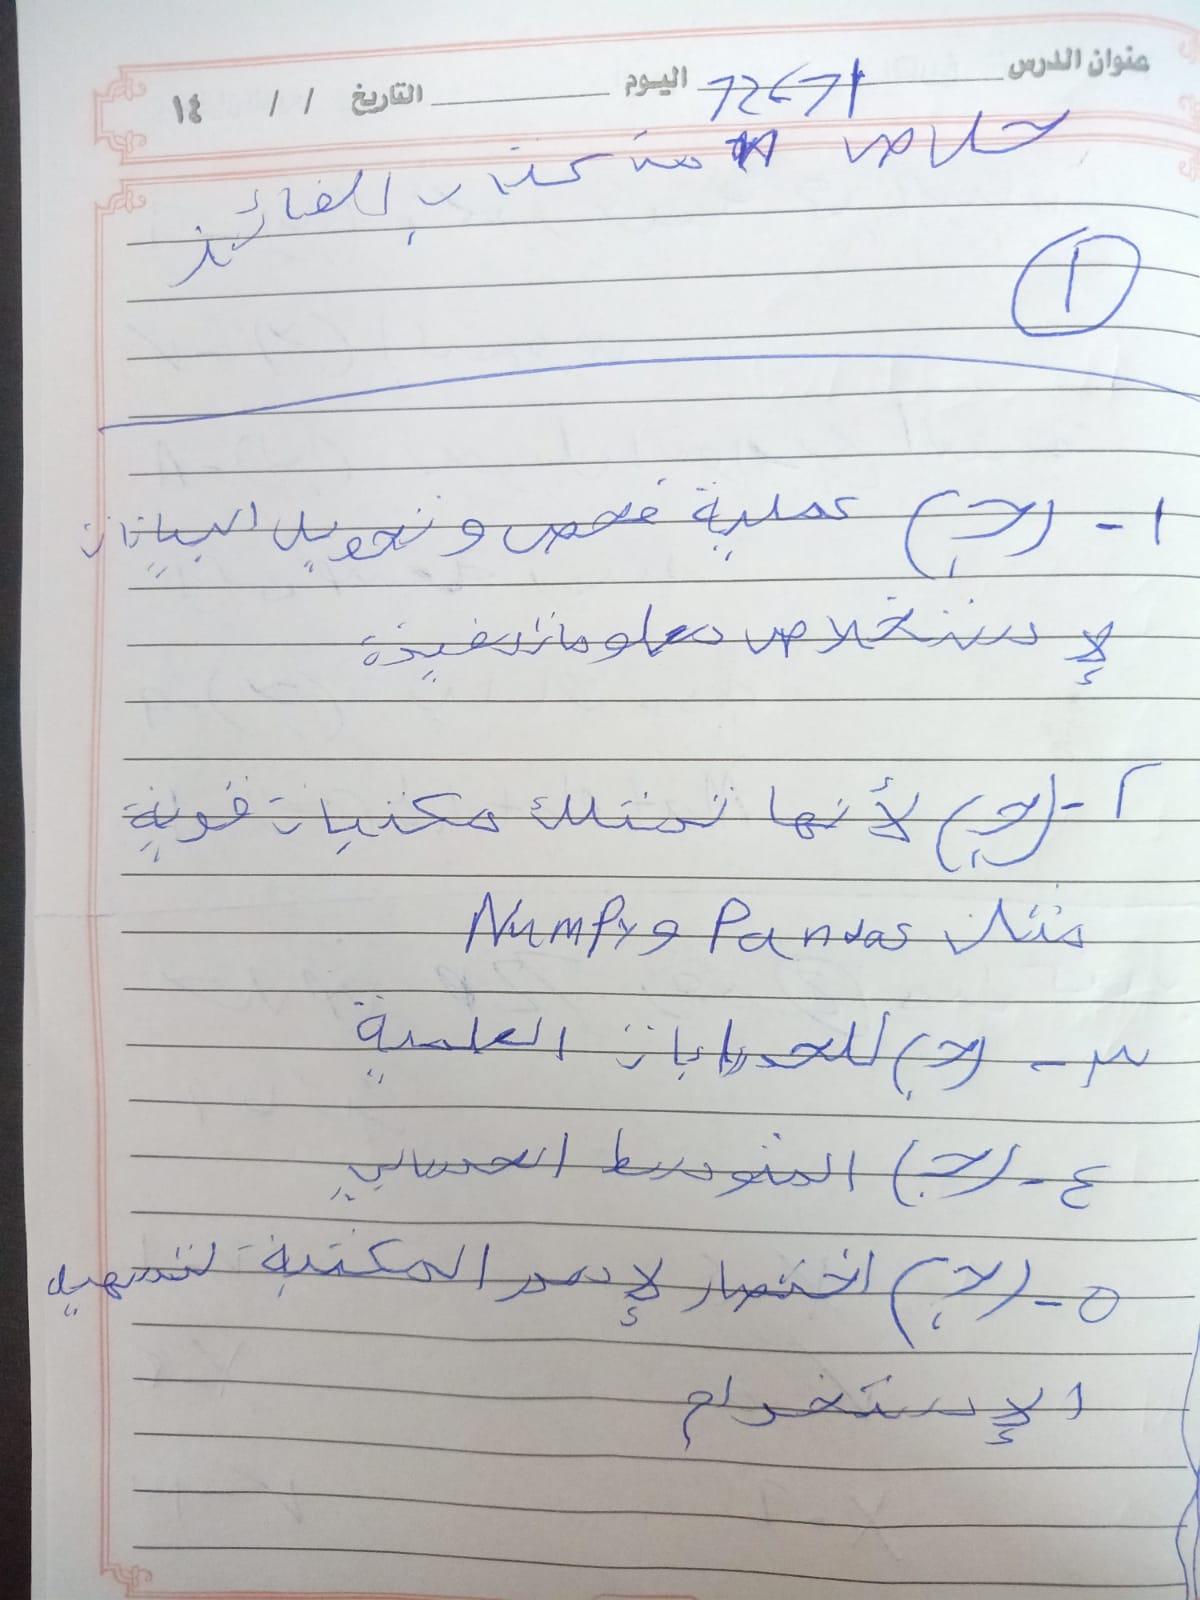 عنوان الدرس اليوم التاريخ / / ١٤
72671
خلاص من كتاب الفائز
١
١- (ج) عملية فحص وتحويل البيانات
لإستخلاص معلومات مفيدة
٢- (ج) لأنها تمتلك مكتبات قوية
مثل Pandas و Numpy
٣- (ج) للحسابات العلمية
٤- (ج) المتوسط الحسابي
٥- (ج) اختصار لإسم المكتبة لتسهيل
الإستخدام